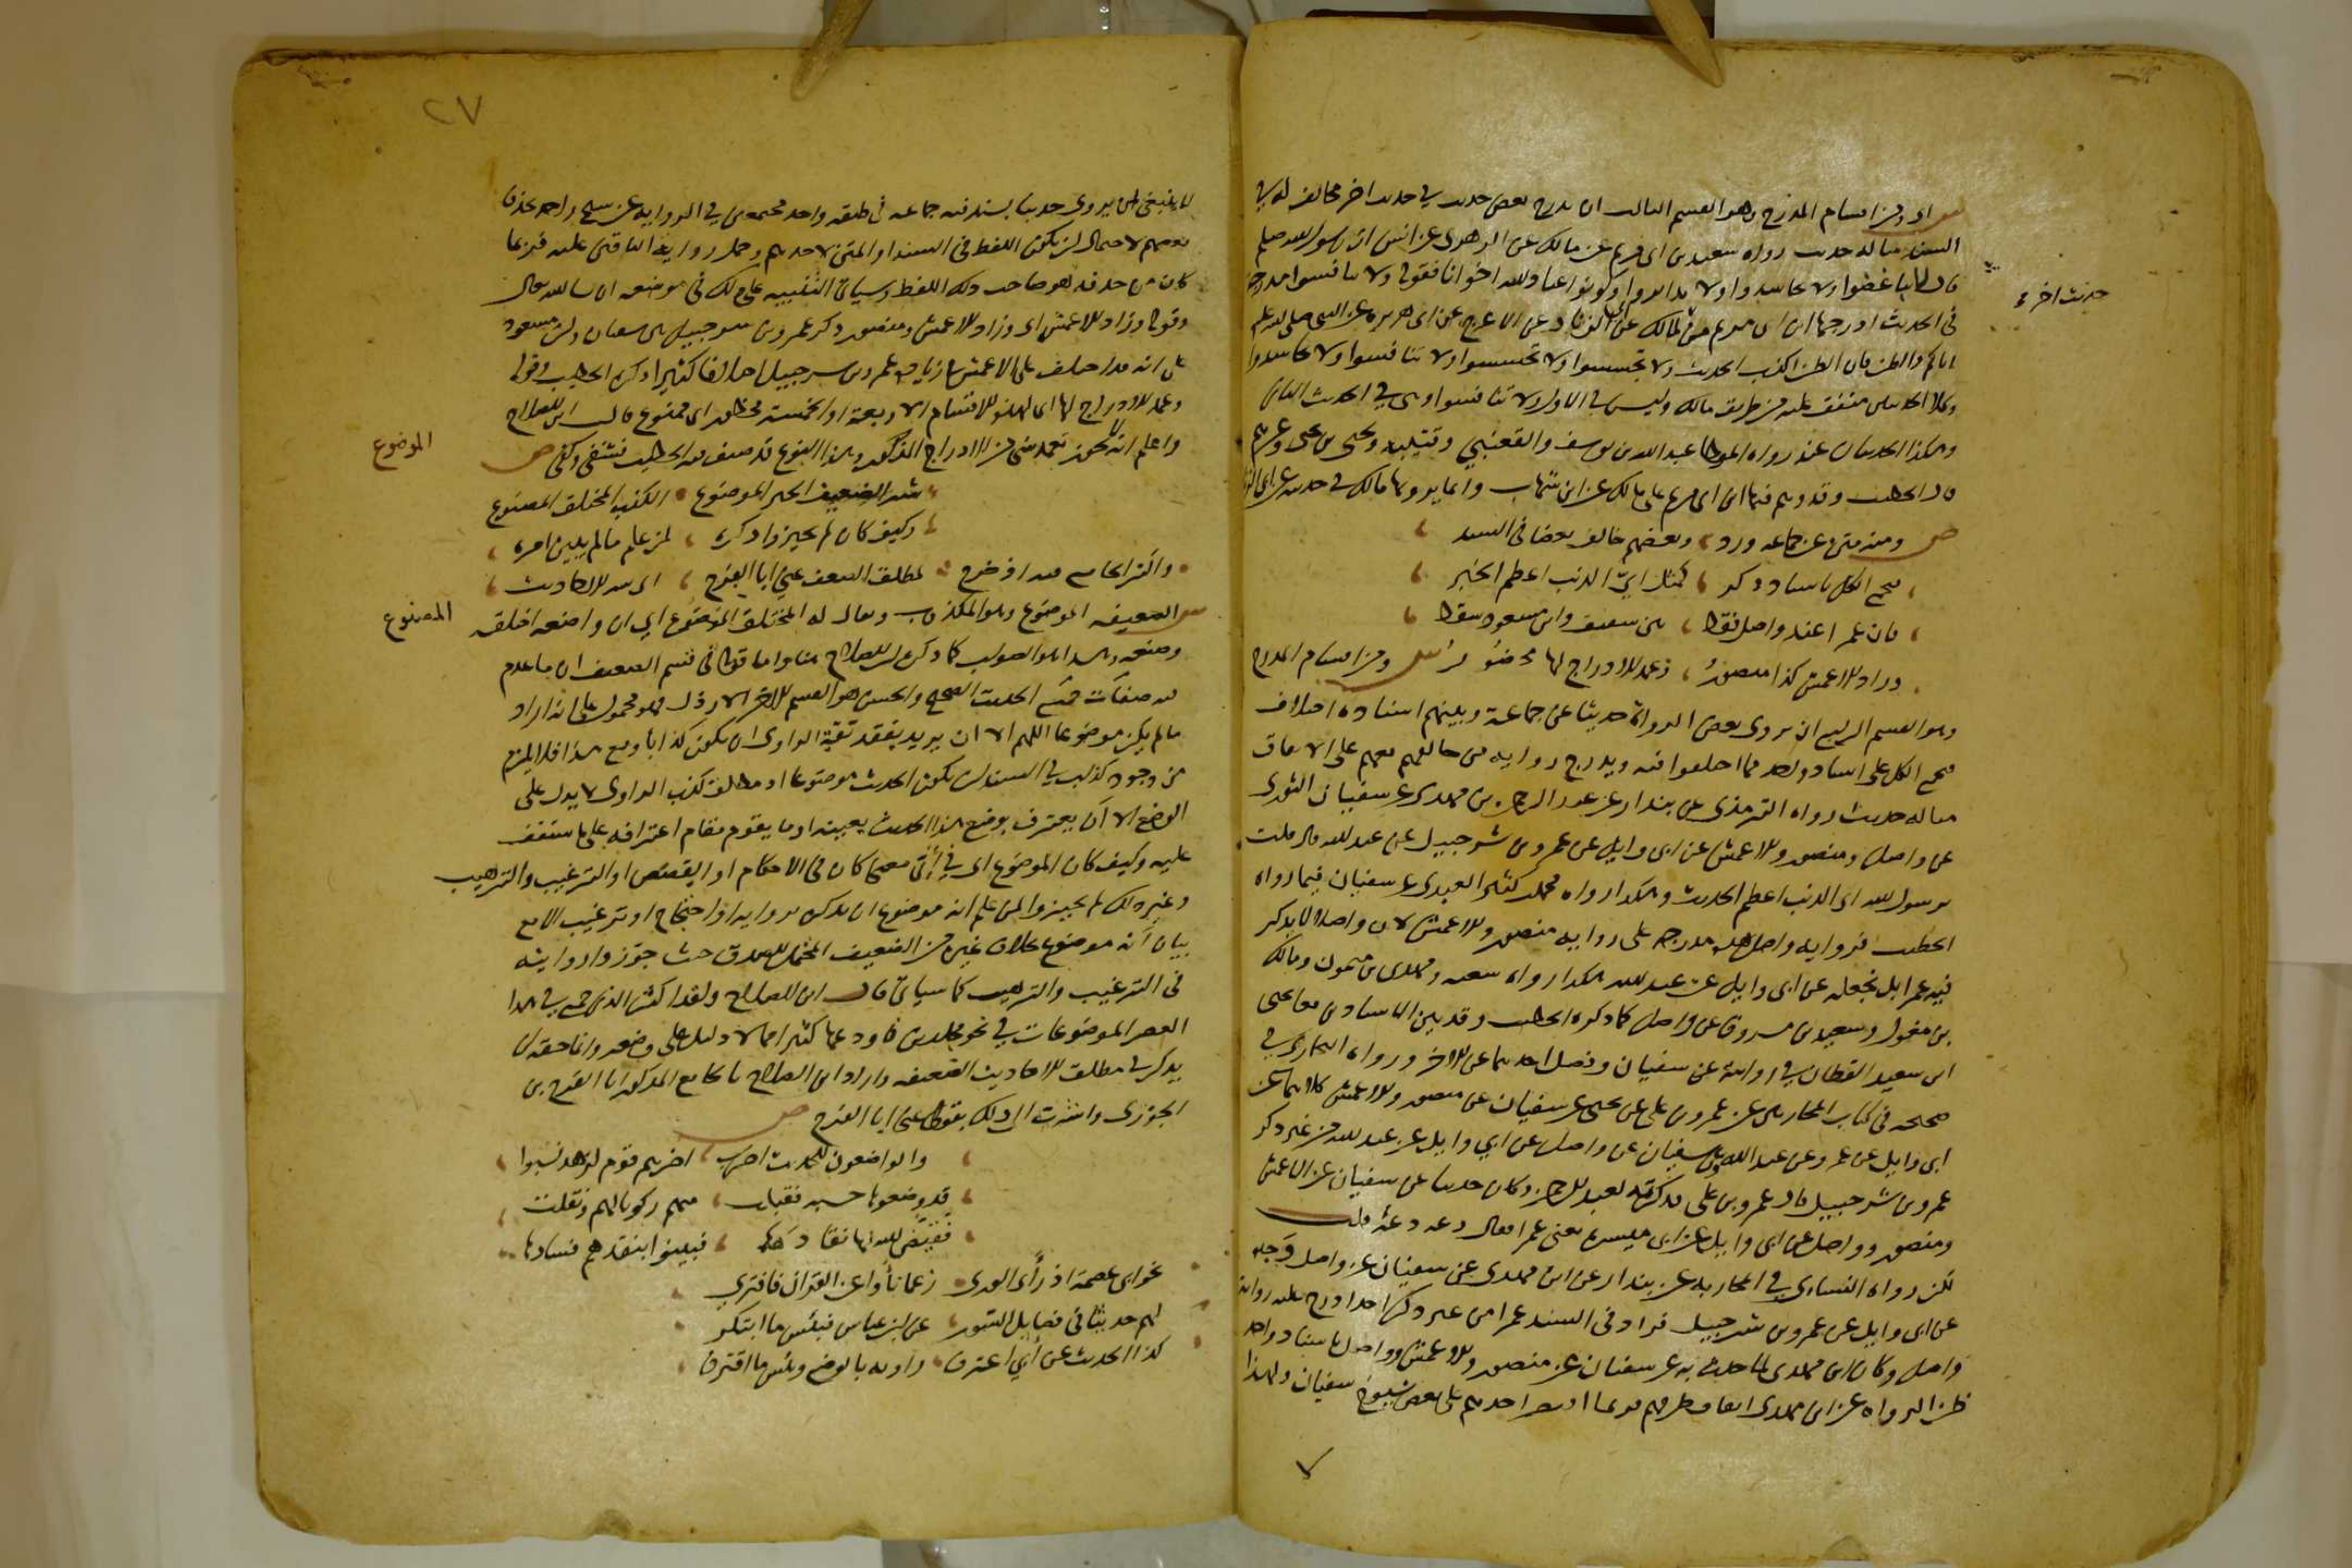 اي ومن اقسام المدرج وهو القسم الثالث ان يدرج بعض حديث في حديث اخر مخالف له في
السند مثاله حديث رواه سعيد بن ابي مريم عن مالك عن الزهري عن انس ان رسول الله صلعم
قال لا تباغضوا ولا تحاسدوا ولا تدابروا وكونوا عباد الله اخوانا فقوله ولا تنافسوا مدرجة
حديث اخر
في الحديث ادرجها ابن ابي مريم من حديث لمالك عن ابي الزناد عن الاعرج عن ابي هريرة عن النبي صلى الله عليه
اياكم والظن فان الظن اكذب الحديث ولا تجسسوا ولا تحسسوا ولا تنافسوا ولا تحاسدوا
وكلا الحديثين متفق عليه من طريق مالك وليس في الاول ولا تنافسوا وهي في الحديث الثاني
وهكذا الحديثان عند رواة الموطا عبد الله بن يوسف والقعنبي وقتيبة ويحيى بن يحيى وغيرهم
قال الخطيب وقد وهم فيها ابن ابي مريم على مالك عن ابن شهاب وانما يرويها مالك في حديثه عن ابي الزناد
ص ومنه متن عن جماعة ورد ، وبعضهم خالف بعضا في السند
فيجمع الكل باسناد ذكر ، كمتن اي الذنب اعظم الخبر
فان عمرا عند واصل فقط ، بين شقيق وابن مسعود سقط
وزاد الاعمش كذا منصور ، وعمد الادراج لها محظور ش ومن اقسام المدرج
وهو القسم الرابع ان يروي بعض الرواة حديثا عن جماعة وبينهم اسناده اختلاف
فيجمع الكل على اسناد واحد مما اختلفوا فيه ويدرج رواية من خالفهم معهم على الاتفاق
مثاله حديث رواه الترمذي عن بندار عن عبد الرحمن بن مهدي عن سفيان الثوري
عن واصل ومنصور والاعمش عن ابي وايل عن عمرو بن شرحبيل عن عبد الله قال قلت
يرسول الله اي الذنب اعظم الحديث وهكذا رواه محمد بن كثير العبدي عن سفيان فيما رواه
الخطيب فرواية واصل هذه مدرجة على رواية منصور والاعمش لان واصلا لا يذكر
فيه عمرا بل يجعله عن ابي وايل عن عبد الله هكذا رواه شعبة ومهدي بن ميمون ومالك
بن مغول وسعيد بن مسروق عن واصل كما ذكره الخطيب وقد بين الاسنادين معا يحيى
ابن سعيد القطان في روايته عن سفيان وفصل احدهما عن الاخر ورواه البخاري في
صحيحه في كتاب المحاربين عن عمرو بن علي عن يحيى عن سفيان عن منصور والاعمش كلاهما عن
ابي وايل عن عمرو عن عبد الله وعن سفيان عن واصل عن ابي وايل عن عبد الله من غير ذكر
عمرو بن شرحبيل قال عمرو بن علي فذكرته لعبد الرحمن وكان حدثنا عن سفيان عن الاعمش
ومنصور وواصل عن ابي وايل عن ابي ميسرة يعني عمرا فقال دعه دعه قلت
لكن رواه النسائي في المحاربة عن بندار عن ابن مهدي عن سفيان عن واصل وحده
عن ابي وايل عن عمرو بن شرحبيل فزاد في السند عمرا من غير ذكر احد ادرج عليه رواية
واصل وكان ابن مهدي لما حدث به عن سفيان عن منصور والاعمش وواصل باسناد واحد
ظن الرواة عن ابن مهدي اتفاق طرقهم فربما اقتصر احدهم على بعض شيوخ سفيان ولهذا
٢٧
لا ينبغي لمن يروي حديثا بسند فيه جماعة في طبقة واحد مجتمعين في الرواية عن شيخ واحد يحذف
بعضهم لاحتمال ان يكون اللفظ في السند او المتن لاحدهم وحمل رواية الباقين عليه فربما
كان من حذفه هو صاحب ذلك اللفظ وسياتي التنبيه على ذلك في موضعه ان شا الله تعالى
وقوله وزاد الاعمش اي وزاد الاعمش ومنصور ذكر عمرو بن شرحبيل بين شقيق وابن مسعود
على انه قد اختلف على الاعمش في زيادة عمرو بن شرحبيل اختلافا كثيرا ذكره الخطيب وقوله
وعمد الادراج لها اي لهذه الاقسام الاربعة او الخمسة محظور اي ممنوع قال ابن الصلاح
واعلم انه لا يجوز تعمد شي من الادراج المذكور وهذا النوع قد صنف فيه الخطيب فشفى وكفى ص
الموضوع
شر الضعيف الخبر الموضوع • الكذب المختلق المصنوع
وكيف كان لم يجيزوا ذكره ، لمن علم ما لم يبين امره
واكثر الجامع فيه اذ خرج • لمطلق الضعف عني ابا الفرج ، ش شر الاحاديث
الضعيفه الموضوع وهو المكذوب ويقال له المختلق المصنوع اي ان واضعه اختلقه
المصنوع
وصنعه وهذا هو الصواب كما ذكره ابن الصلاح هنا واما قوله في قسم الضعيف ان ما عدم
فيه صفات الحديث الصحيح والحسن هو القسم الاخر الارذل فهو محمول على انه اراد
ما لم يكن موضوعا اللهم الا ان يريد بفقد ثقة الراوي ان يكون كذابا ومع هذا فلا يلزم
من وجود كذاب في السند ان يكون الحديث موضوعا اذ مطلق كذب الراوي لا يدل على
الوضع الا ان يعترف بوضع هذا الحديث بعينه او ما يقوم مقام اعترافه على ما ستقف
عليه وكيف كان الموضوع اي في اي معنى كان في الاحكام او القصص او الترغيب والترهيب
وغير ذلك لم يجيزوا لمن علم انه موضوع ان يذكره برواية او احتجاج او ترغيب الا مع
بيان انه موضوع بخلاف غيره من الضعيف المحتمل للصدق حيث جوزوا روايته
في الترغيب والترهيب كما سياتي قال ابن الصلاح ولقد اكثر الذي جمع في هذا
العصر الموضوعات في نحو مجلدين فاودعها كثيرا مما لا دليل على وضعه وانما حقه ان
يذكر في مطلق الاحاديث الضعيفه واراد ابن الصلاح بالجامع المذكور ابا الفرج بن
الجوزي واشرت الى ذلك بقولي عني ابا الفرج ص
والواضعون للحديث اضرب ، اضرهم قوم لزهد نسبوا
قد وضعوها حسبة فقبلت ، منهم ركونا لهم ونقلت
فقيض الله لها نقادها ، فبينوا بنقدهم فسادها
نحو ابي عصمة اذ رأى الورى • زعما نأوا عن القران فافترى
لهم حديثا في فضايل السور ، عن ابن عباس فبئس ما ابتكر
كذا الحديث عن ابي اعترف • راويه بالوضع وبئس ما اقترف